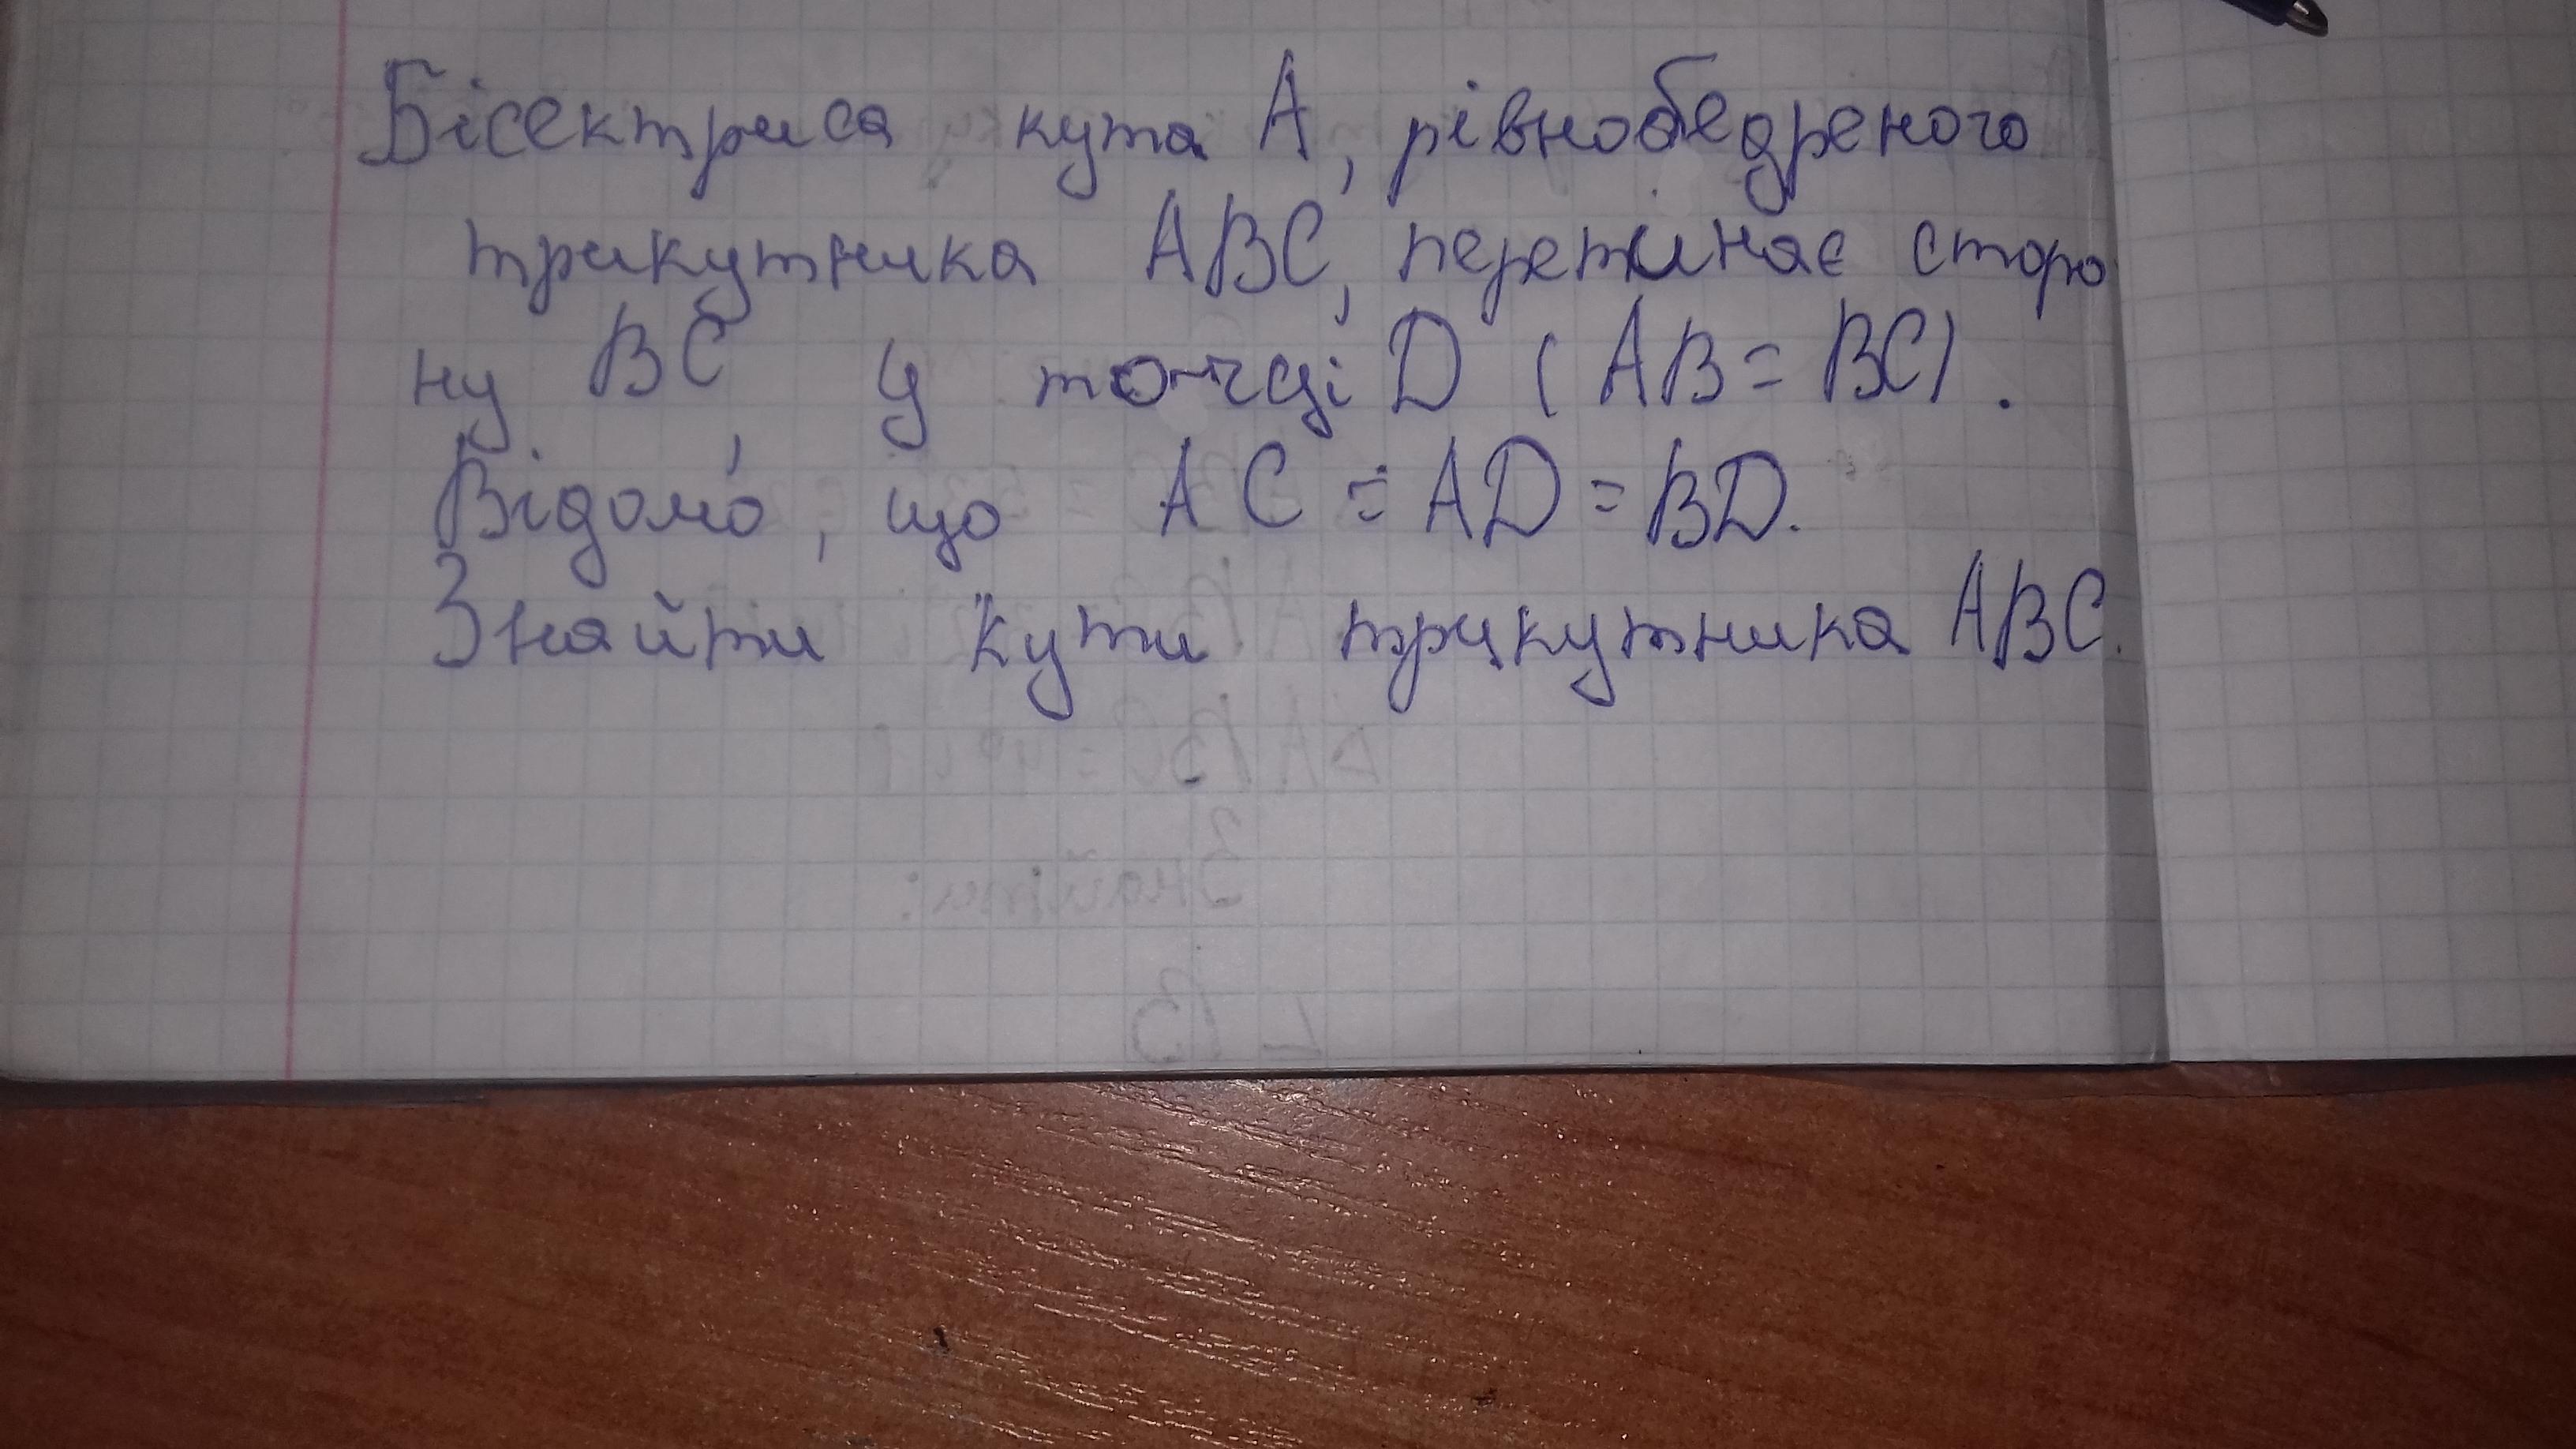 Бісектриса кута А, рівнобедреного
трикутника АВС, перетинає сторо
ну ВС у точці D (АВ = ВС).
Відомо, що АС = АD = ВD.
Знайти кути трикутника АВС.